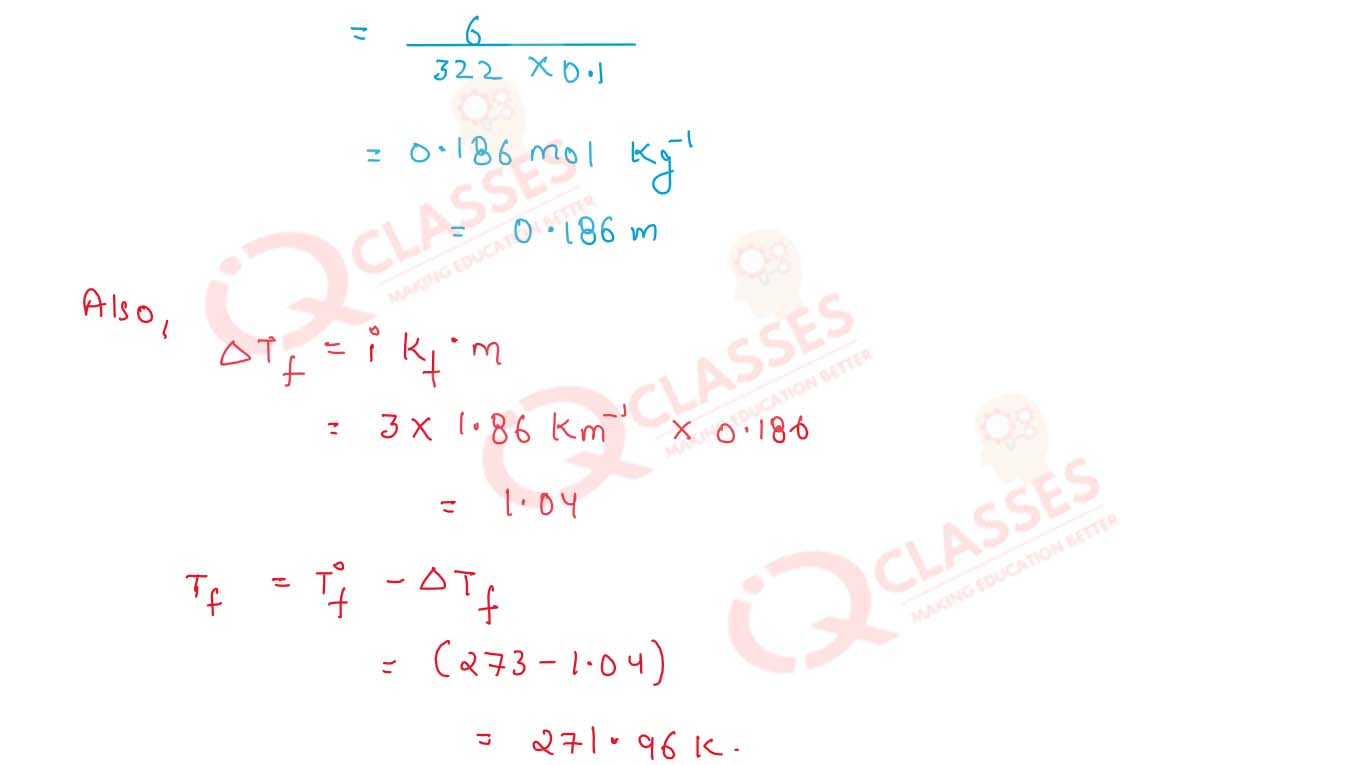 = 6
322 × 0.1
= 0.186 mol Kg⁻¹
= 0.186 m
Also,
ΔT_f = i K_f · m
= 3 × 1.86 Km⁻¹ × 0.186
= 1.04
T_f = T°_f − ΔT_f
= (273 − 1.04)
= 271.96 K.
iQ CLASSES
MAKING EDUCATION BETTER
iQ CLASSES
MAKING EDUCATION BETTER
iQ CLASSES
MAKING EDUCATION BETTER